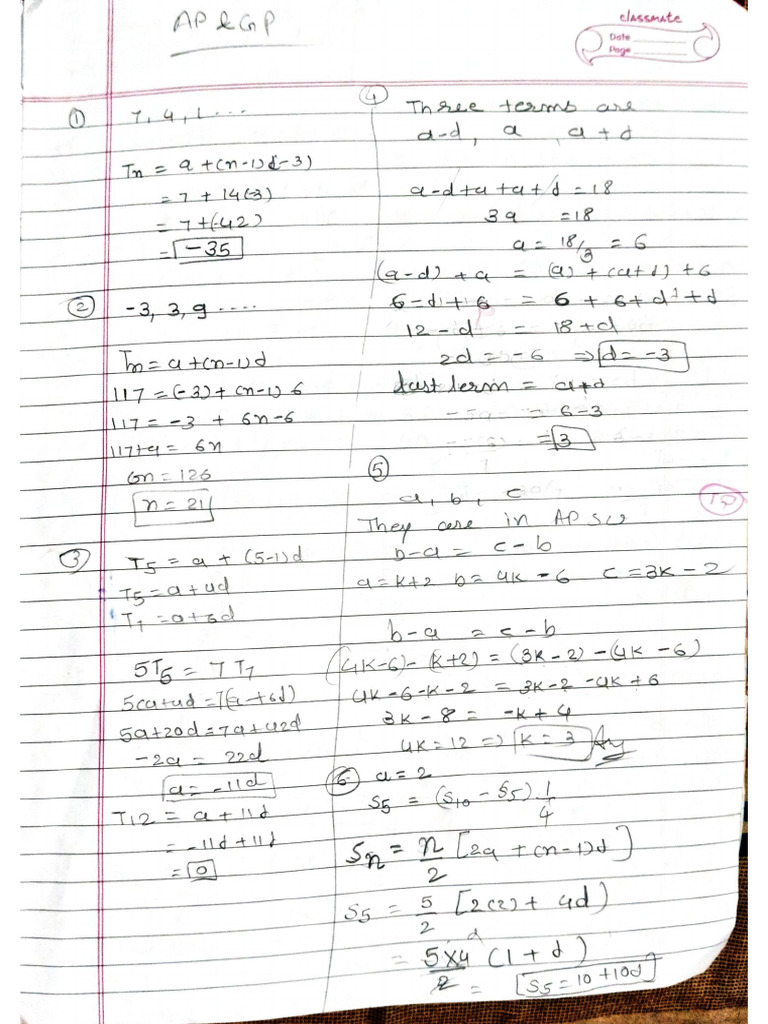 AP & GP
classmate
Date
Page
① 7, 4, 1 ...
Tn = a + (n-1)d(-3)
= 7 + 14(-3)
= 7 + (-42)
= -35
② -3, 3, 9 ....
Tn = a + (n-1)d
117 = (-3) + (n-1) 6
117 = -3 + 6n - 6
117 + 9 = 6n
6n = 126
n = 21
③ T5 = a + (5-1)d
T5 = a + 4d
T7 = a + 6d
5T5 = 7T7
5(a+4d) = 7(a+6d)
5a+20d = 7a+42d
-2a = 22d
a = -11d
T12 = a + 11d
= -11d + 11d
= 0
④ Three terms are
a-d, a a+d
a-d+a+a+d = 18
3a = 18
a = 18/3 = 6
(a-d) + a = (a) + (a+d) + 6
6-d + 6 = 6 + 6 + d + d
12 - d = 18 + d
2d = -6 ⇒ d = -3
Last term = a+d
= 6 - 3
= 3
⑤
a, b, c
They are in AP so
b-a = c-b
a = k+2 b = 4k - 6 c = 3k - 2
b-a = c-b
(4k-6) - (k+2) = (3k-2) - (4k-6)
4k-6-k-2 = 3k-2-4k+6
3k - 8 = -k + 4
4k = 12 ⇒ k = 3 Ans
⑥ a = 2
S5 = (S10 - S5) 1/4
Sn = n/2 [2a + (n-1)d]
S5 = 5/2 [2(2) + 4d)
= 5×4/2 (1 + d)
= S5 = 10 + 10d